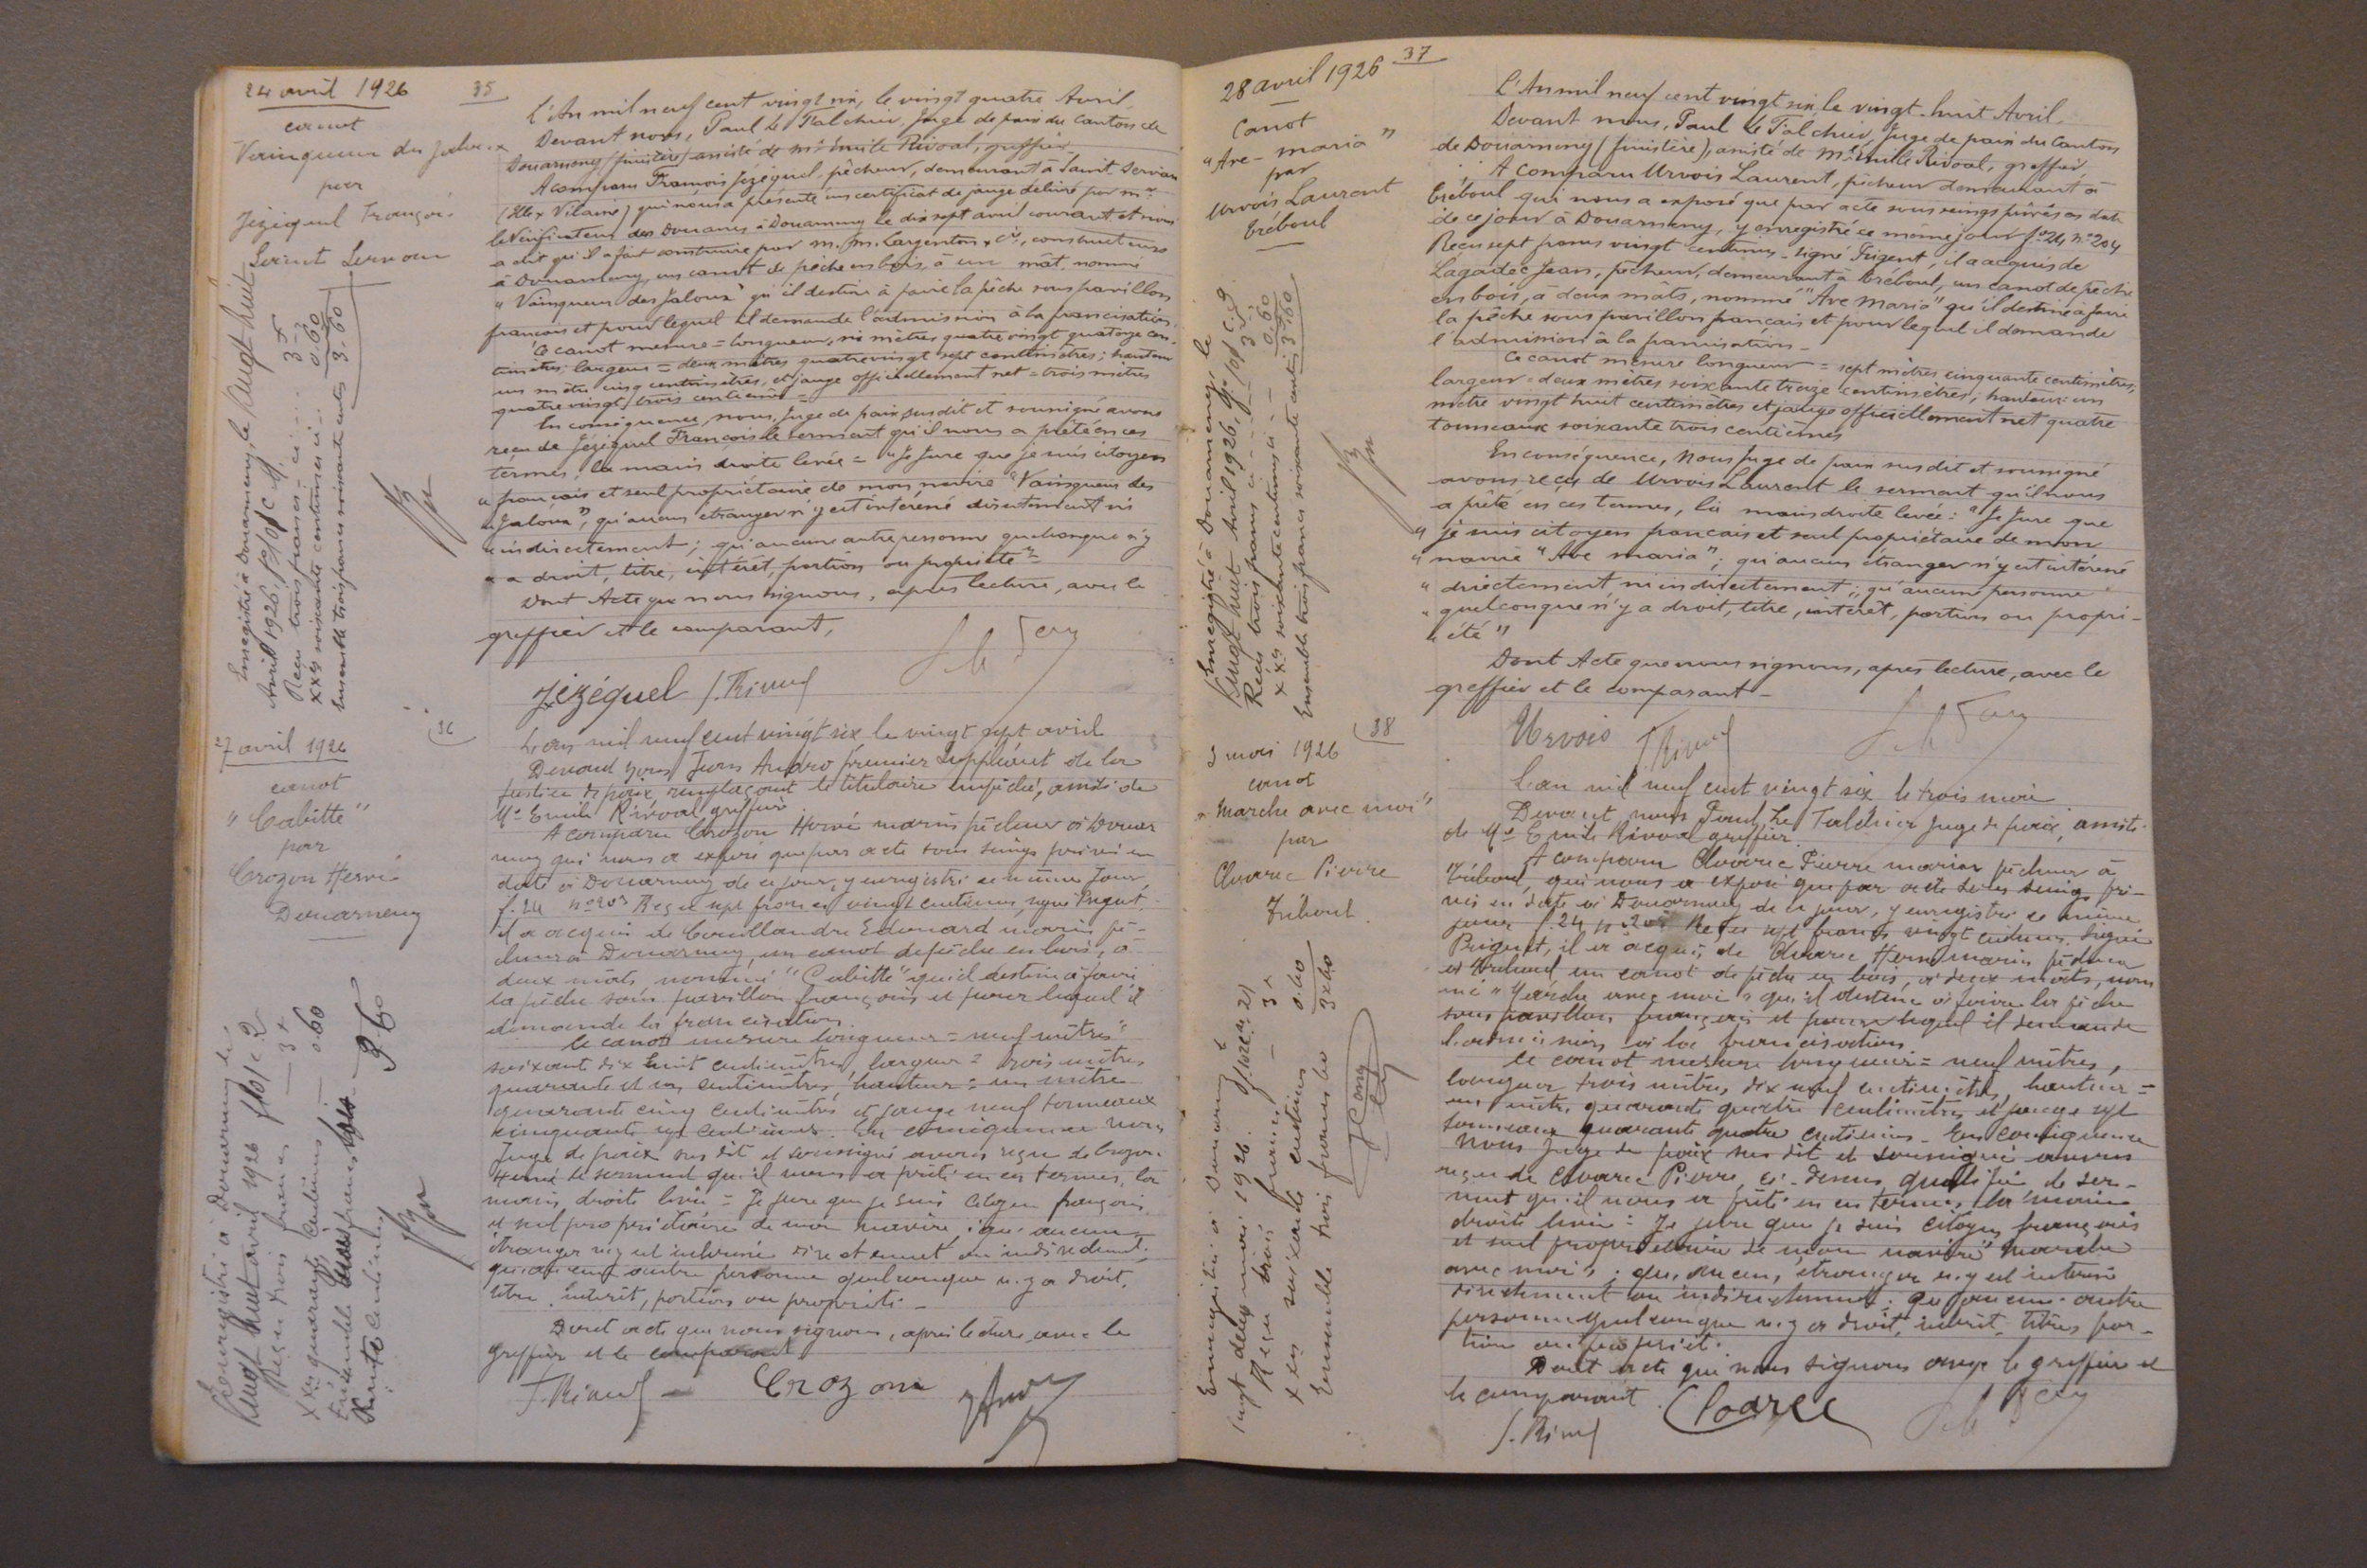 24 avril 1926
35
canot
Vainqueur des Jaloux
par
Jézéquel François
Saint Servan
Enregistré à Douarnenez, le vingt huit
Avril 1926, f° 101 c
Reçu trois francs ci 3 -
xxes soixante centimes ci 0.60
Ensemble trois francs soixante cent 3.60
L'An mil neuf cent vingt six, le vingt quatre Avril.
Devant nous, Paul Le Talchier, Juge de paix du Canton de
Douarnenez (finistère) assisté de Me Emile Rivoal, greffier
A comparu François Jézéquel, pêcheur, demeurant à Saint Servan
(Ille x Vilaine) qui nous a présenté un certificat de jauge délivré par Mr
le Vérificateur des Douanes à Douarnenez le dix sept avril courant et nous
a dit qu'il a fait construire par M.M. Largenton x Cie, constructeurs
à Douarnenez, un canot de pêche en bois, à un mât, nommé
"Vainqueur des Jaloux" qu'il destine à faire la pêche sous pavillon
français et pour lequel il demande l'admission à la francisation.
Ce canot mesure = longueur, six mètres quatre vingt quatorze cen-
timètres; largeur = deux mètres quatre vingt sept centimètres; hauteur
un mètre cinq centimètres, et jauge officiellement net = trois mètres
quatre vingt trois centièmes =
En conséquence, nous, Juge de paix susdit et soussigné avons
reçu de Jézéquel François le serment qu'il nous a prêté en ces
termes, la main droite levée = "Je Jure que je suis citoyen
" français et seul propriétaire de mon navire "Vainqueur des
" Jaloux", qu'aucun étranger n'y est intéressé directement ni
" indirectement; qu'aucune autre personne quelconque n'y
" a droit, titre, intérêt, portion ou propriété"=
Dont Acte que nous signons, après lecture, avec le
greffier et le comparant,
Jézéquel
27 avril 1926
36
canot
"Cabitte"
par
Crozon Hervé
Douarnenez
Enregistré à Douarnenez le
vingt huit avril 1926 f° 101 c 2
Reçu trois francs 3 -
xxes quarante centimes 0.60
Ensemble trois francs
soixante centimes 3 60
L'an mil neuf cent vingt six le vingt sept avril
Devant nous Jean Andro premier Suppléant de la
Justice de paix remplaçant le titulaire empêché, assisté de
Me Emile Rivoal greffier
A comparu Crozon Hervé marin pêcheur à Douar
nenez qui nous a exposé que par acte sous seings privés en
date à Douarnenez de ce jour, y enregistré ce même jour,
f. 24 n° 203 Reçu sept francs vingt centimes, signé Prigent,
il a acquis de Couillandre Edouard marin pê-
cheur à Douarnenez, un canot de pêche en bois, à
deux mâts nommé "Cabitte" qu'il destine à faire
la pêche sous pavillon français et pour lequel il
demande la francisation.
Ce canot mesure longueur = neuf mètres
soixante dix huit centimètres, largeur = trois mètres
quarante et un centimètres, hauteur = un mètre
quarante cinq centimètres et jauge neuf tonneaux
cinquante sept centièmes. En conséquence nous
Juge de paix sus dit et soussigné avons reçu de Crozon
Hervé le serment qu'il nous a prêté en ces termes, la
main droite levée = Je jure que je suis Citoyen français
et seul propriétaire de mon navire; qu'aucun
étranger n'y est intéressé directement ou indirectement;
qu'aucune autre personne quelconque n'y a droit,
titre, intérêt, portion ou propriété -
Dont acte que nous signons, après lecture avec le
greffier et le comparant
Crozon
28 avril 1926
37
Canot
"Ave-maria"
par
Urvois Laurent
Tréboul
Enregistré à Douarnenez, le
vingt huit Avril 1926, f° 101 c. 9.
Reçu trois francs ci 3 -
xxes soixante centimes ci 0.60
Ensemble trois francs soixante cent 3.60
L'An mil neuf cent vingt six le vingt-huit Avril.
Devant nous, Paul Le Talchier, Juge de paix du Canton
de Douarnenez (finistère), assisté de Me Emile Rivoal, greffier,
A comparu Urvois Laurent, pêcheur demeurant à
Tréboul qui nous a exposé que par acte sous seings privés en date
de ce jour à Douarnenez, y enregistré ce même jour f° 24 n° 204
Reçu sept francs vingt centimes - signé Prigent, il a acquis de
Lagadec Jean, pêcheur, demeurant à Tréboul, un canot de pêche
en bois, à deux mâts, nommé "Ave Maria" qu'il destine à faire
la pêche sous pavillon français et pour lequel il demande
l'admission à la francisation -
Ce canot mesure longueur = sept mètres cinquante centimètres,
largeur = deux mètres soixante treize centimètres, hauteur un
mètre vingt huit centimètres et jauge officiellement net quatre
tonneaux soixante trois centièmes
En conséquence, Nous Juge de paix susdit et soussigné
avons reçu de Urvois Laurent le serment qu'il nous
a prêté en ces termes, la main droite levée: "Je Jure que
" je suis citoyen français et seul propriétaire de mon
" navire "Ave maria"; qu'aucun étranger n'y est intéressé
" directement, ni indirectement; qu'aucune personne
" quelconque n'y a droit, titre, intérêt, portion ou propri-
" été"
Dont Acte que nous signons, après lecture, avec le
greffier et le comparant -
Urvois
3 mai 1926
38
canot
"Marche avec moi"
par
Cloarec Pierre
Tréboul.
Enregistré à Douarnenez
vingt deux mai 1926.
Reçu trois francs 3 -
xxes soixante centimes 0.60
Ensemble trois francs 60 3x60
L'an mil neuf cent vingt six le trois mai
Devant nous Paul Le Talchier Juge de paix, assisté
de Me Emile Rivoal greffier.
A comparu Cloarec Pierre marin pêcheur à
Tréboul, qui nous a exposé que par acte sous seing pri-
vé en date à Douarnenez de ce jour, y enregistré ce même
jour f. 24 n° Reçu sept francs vingt centimes. Signé
Prigent, il a acquis de Cloarec Hervé marin pêcheur
à Tréboul un canot de pêche en bois, à deux mâts, nom
mé "Marche avec moi" qu'il destine à faire la pêche
sous pavillon français et pour lequel il demande
l'admission à la francisation
Ce canot mesure longueur = neuf mètres,
longueur trois mètres dix neuf centimètres, hauteur =
un mètre quarante quatre centimètres et jauge sept
tonneaux quarante quatre centièmes - En conséquence
Nous Juge de paix sus dit et soussigné avons
reçu de Cloarec Pierre, ci-dessus qualifié, le ser-
ment qu'il nous a prêté en ces termes, la main
droite levée = Je jure que je suis citoyen français
et seul propriétaire de mon navire "Marche
avec moi"; qu'aucun étranger n'y est intéressé
directement ou indirectement; qu'aucune autre
personne quelconque n'y a droit, intérêt, titres por-
tion ou propriété.
Dont acte que nous signons avec le greffier et
le comparant.
Cloarec